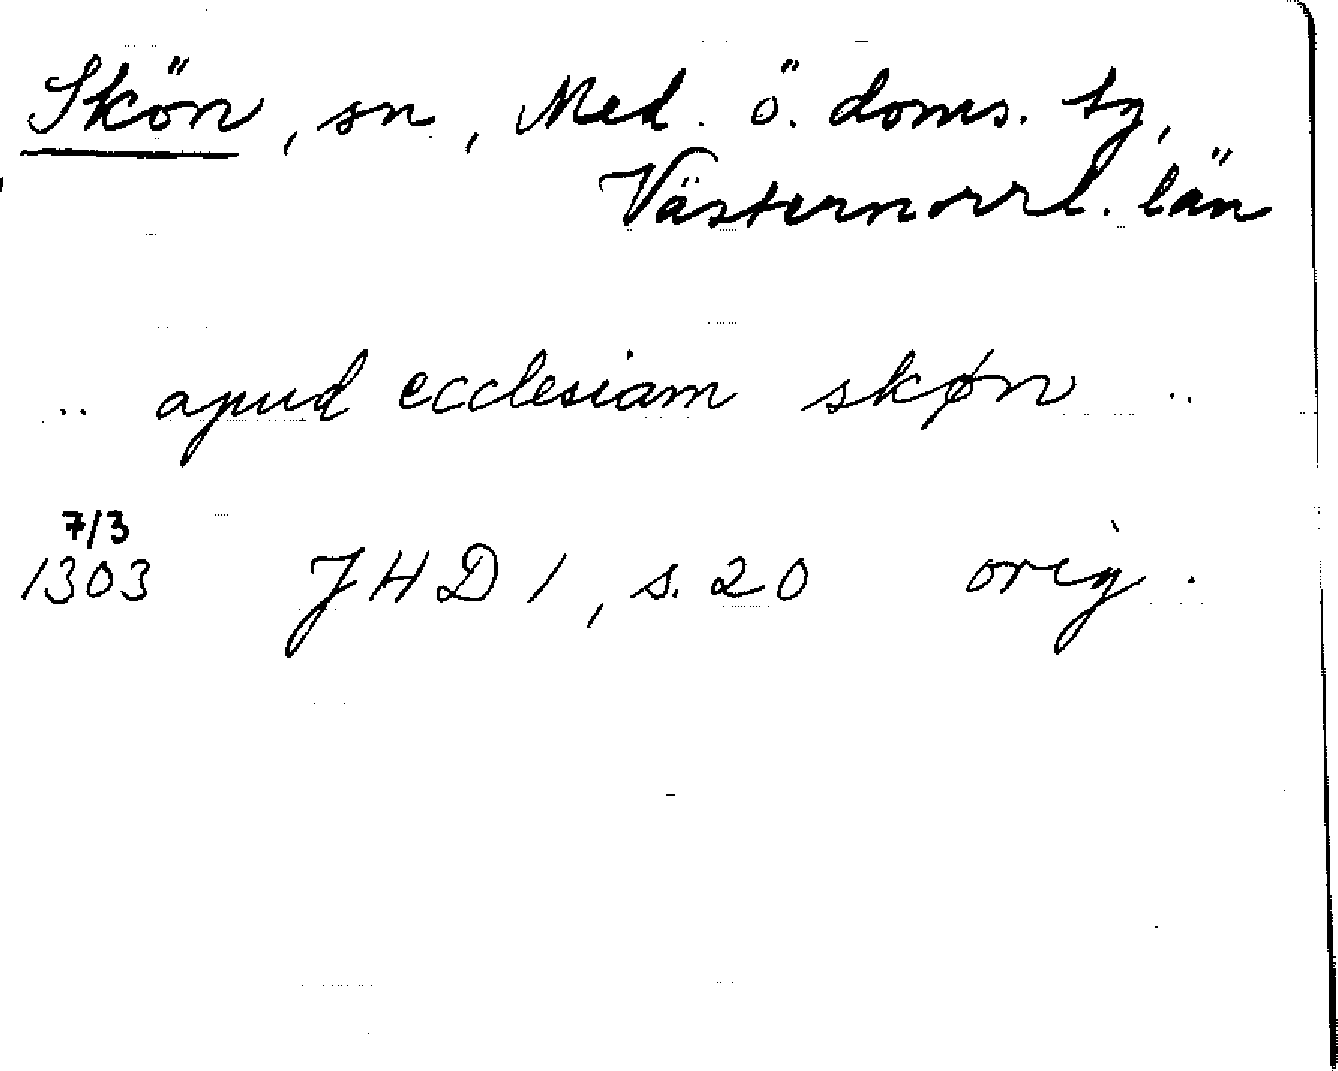 Skön, sn, Med. ö. doms. tg,
Västernorrl. län
.. apud ecclesiam skøn ..
7/3
1303 JHD 1, s. 20 orig.